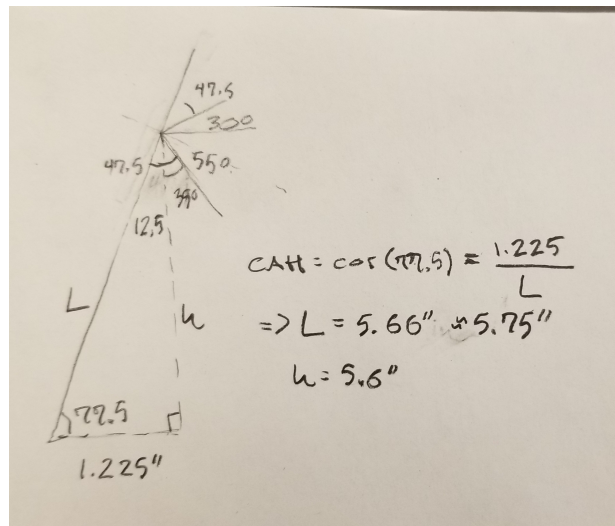 47.5
30°
47.5
55°
35°
12.5
L
h
77.5
1.225"
CAH = cos(77.5) = 1.225 / L
=> L = 5.66" ≈ 5.75"
h = 5.6"